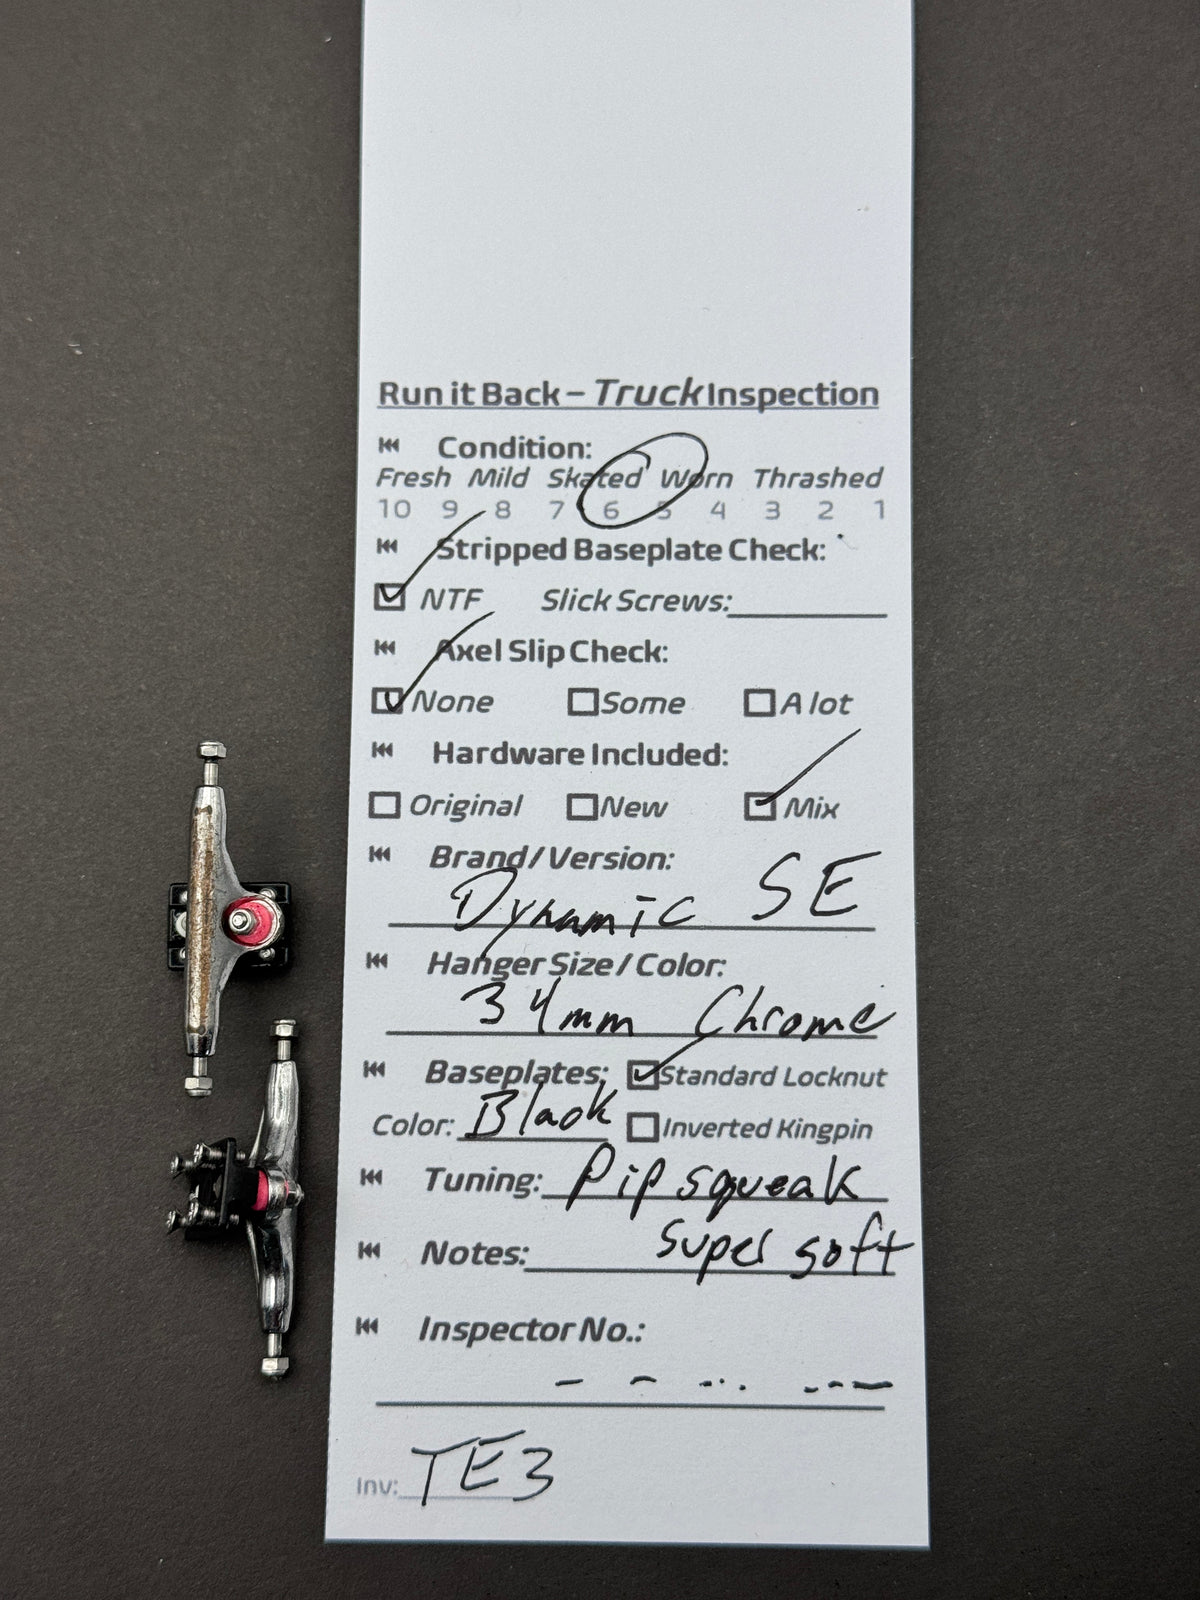 Run it Back – Truck Inspection
Condition:
Fresh Mild Skated Worn Thrashed
10 9 8 7 6 5 4 3 2 1
Stripped Baseplate Check:
NTF Slick Screws:
Axel Slip Check:
None Some A lot
Hardware Included:
Original New Mix
Brand/Version:
Dynamic SE
Hanger Size/Color:
34mm Chrome
Baseplates: Standard Locknut
Color: Black Inverted Kingpin
Tuning: Pipsqueak
super soft
Notes:
Inspector No.:
Inv: TE3